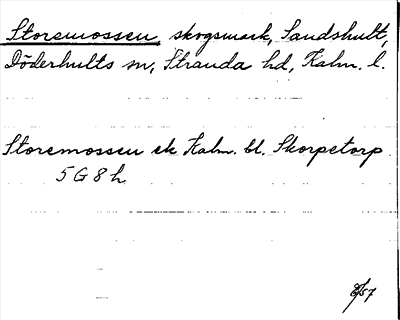 Storemossen, skogsmark, Sandshult,
Döderhults sn, Stranda hd, Kalm. l.
Storemossen ek Kalm. bl. Skorpetorp
5 G 8 h
/57